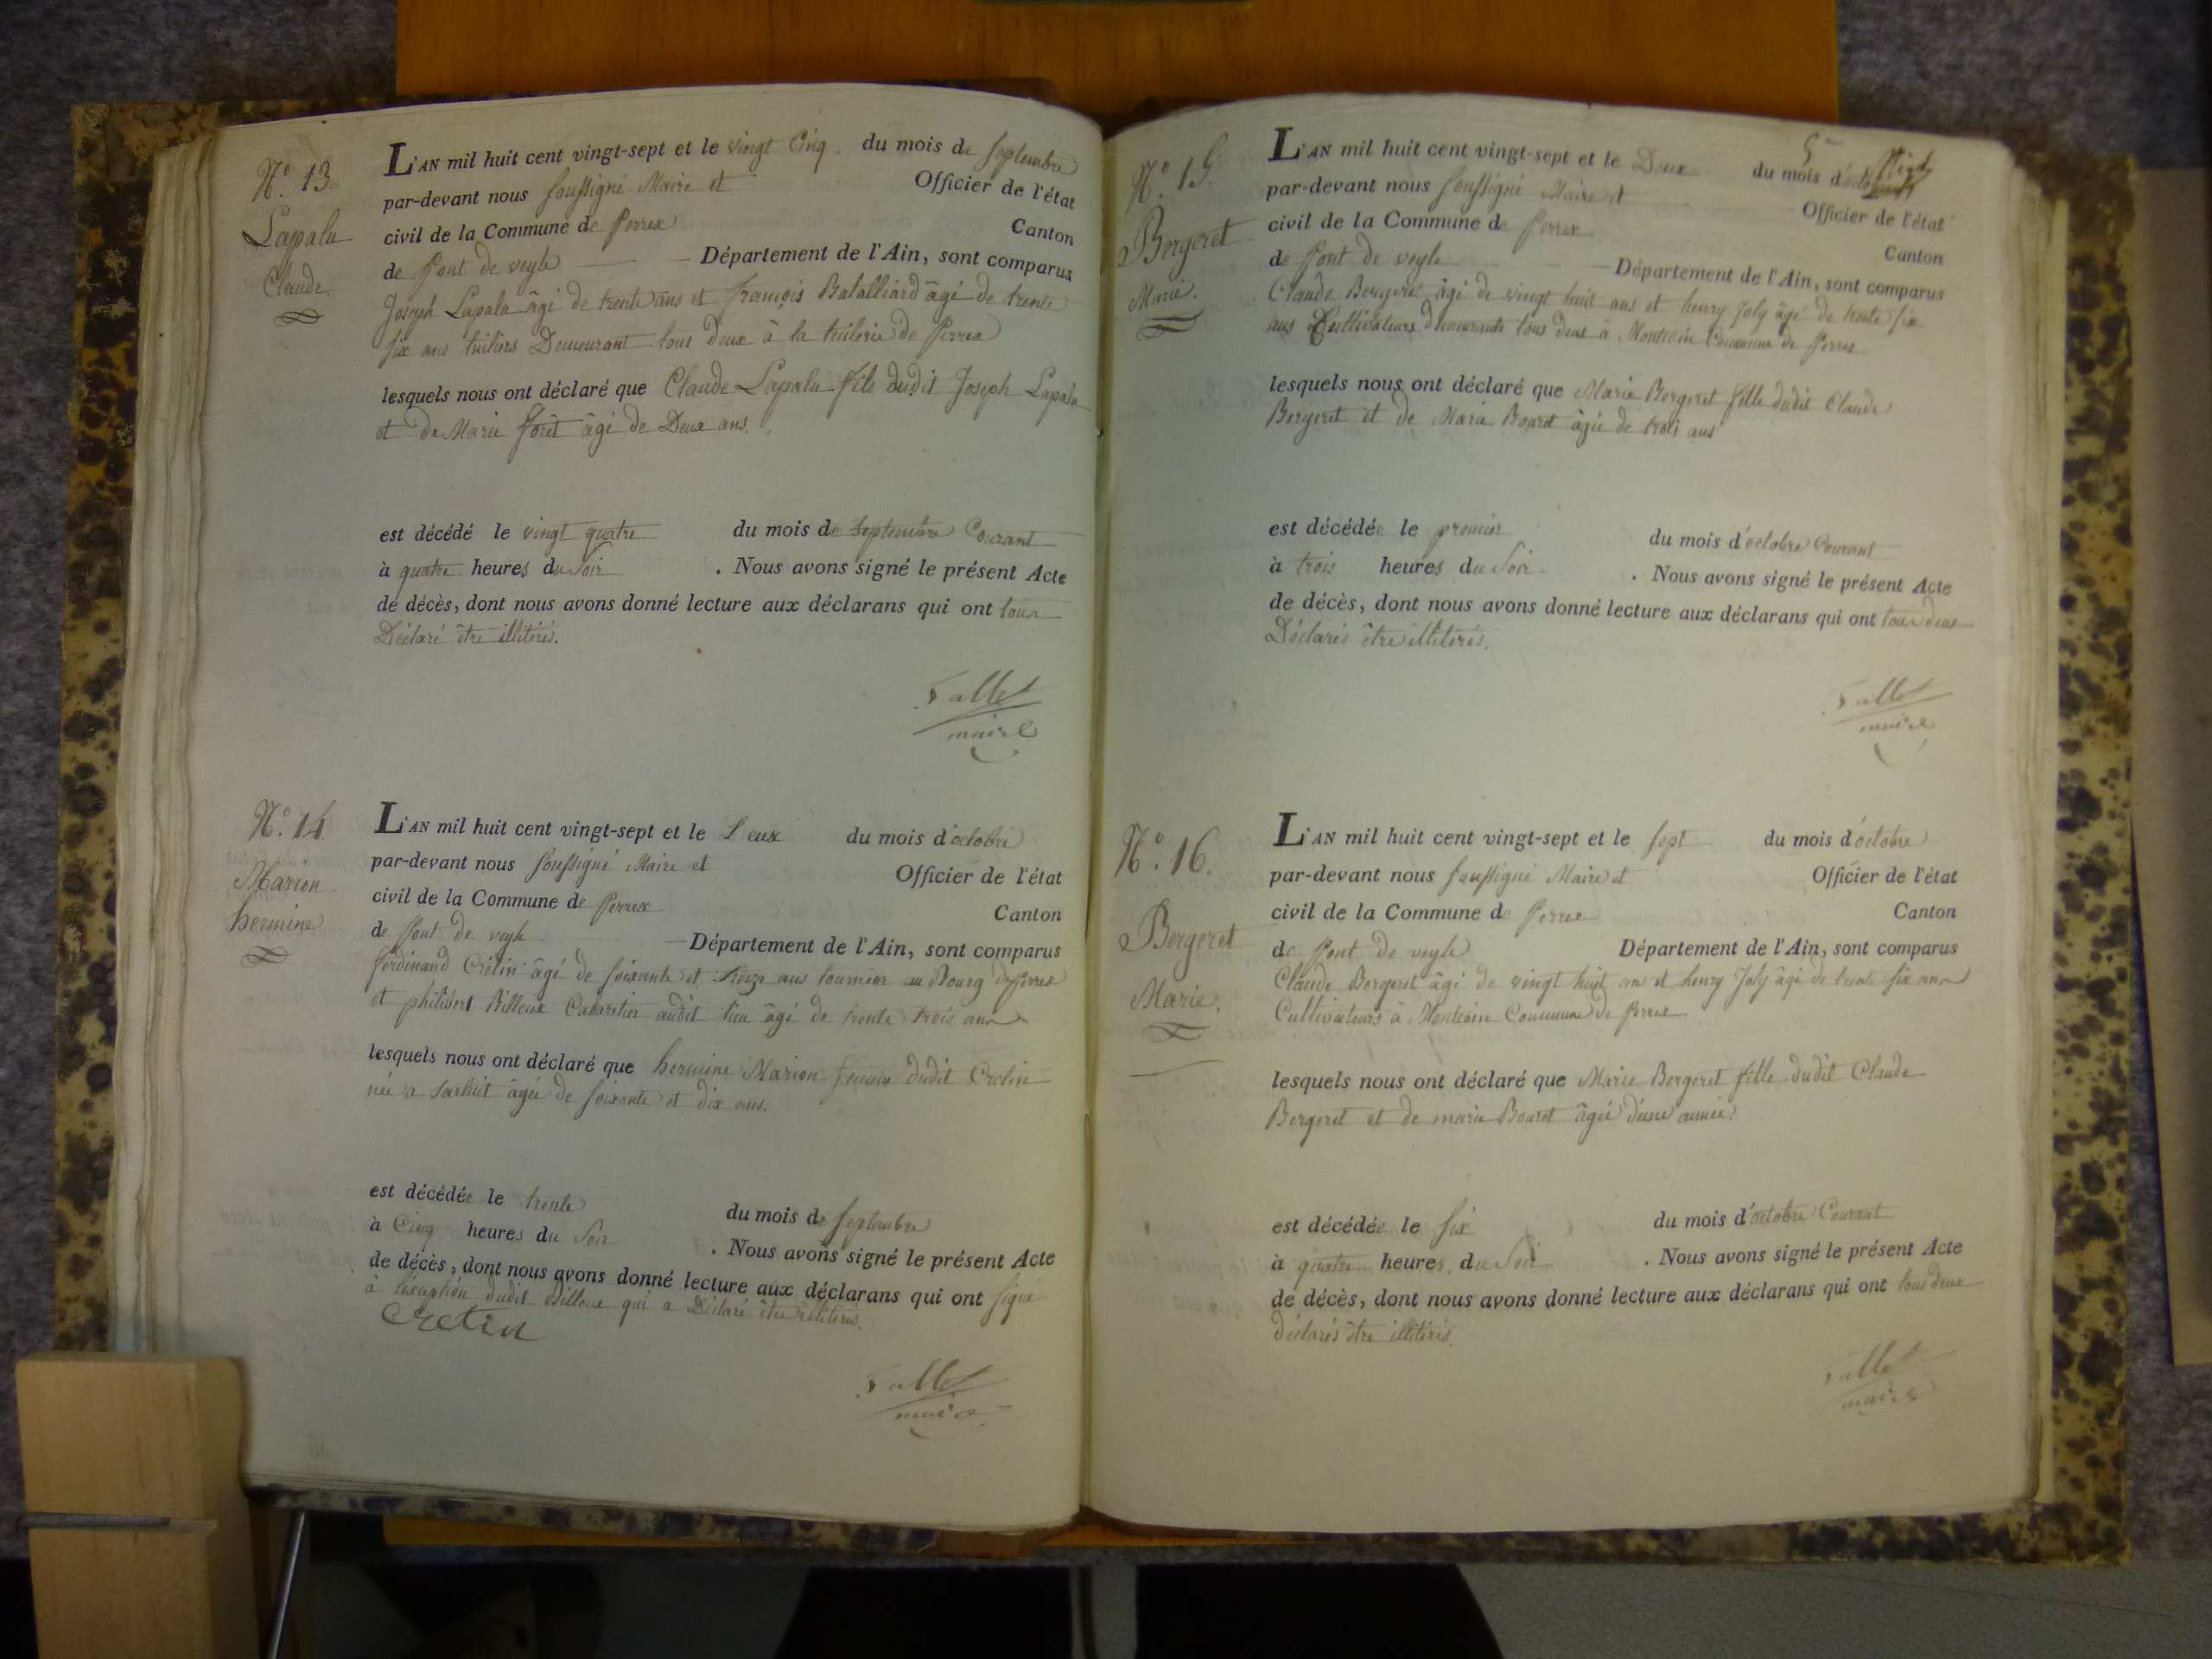 N.° 13
Lapalu
Claude.
L'AN mil huit cent vingt-sept et le vingt Cinq du mois de septembre
par-devant nous soussigné Maire et Officier de l'état
civil de la Commune de Perrex Canton
de Pont de veyle Département de l'Ain, sont comparus
Joseph Lapalu âgé de trente ans et françois Batalliard âgé de trente
six ans tuiliers Demeurant tous deux à la tuilerie de Perrex
lesquels nous ont déclaré que Claude Lapalu fils dudit Joseph Lapalu
et de Marie forêt âgé de Deux ans.
est décédé le vingt quatre du mois de septembre Courant
à quatre heures du Soir . Nous avons signé le présent Acte
de décès, dont nous avons donné lecture aux déclarans qui ont tous
Déclaré être illitérés.
Vallet
maire
N.° 14
Marion
hermine
L'AN mil huit cent vingt-sept et le Deux du mois d'octobre
par-devant nous soussigné Maire et Officier de l'état
civil de la Commune de Perrex Canton
de Pont de veyle Département de l'Ain, sont comparus
ferdinand Crétin âgé de soixante et treize ans tournier au Bourg de Perrex
et philibert Billoux Cabaretier audit lieu âgé de trente trois ans
lesquels nous ont déclaré que hermine Marion femme dudit Cretin
née a âgée de soixante et dix ans.
est décédée le trente du mois de septembre
à Cinq heures du Soir . Nous avons signé le présent Acte
de décès, dont nous avons donné lecture aux déclarans qui ont signé
à l'exception dudit Billoux qui a Déclaré être illitérés.
Cretin
Vallet
maire
5
N.° 15
Bergeret
Marie.
L'AN mil huit cent vingt-sept et le Deux du mois d'octobre
par-devant nous soussigné Maire et Officier de l'état
civil de la Commune de Perrex Canton
de Pont de veyle Département de l'Ain, sont comparus
Claude Bergeret âgé de vingt huit ans et henry Joly âgé de trente six
ans Cultivateurs demeurants tous deux à Montcoin Commune de Perrex
lesquels nous ont déclaré que Marie Bergeret fille dudit Claude
Bergeret et de Marie Bouret âgée de trois ans
est décédée le premier du mois d'octobre Courant
à trois heures du Soir . Nous avons signé le présent Acte
de décès, dont nous avons donné lecture aux déclarans qui ont tous deux
Déclarés être illitérés.
Vallet
maire
N.° 16.
Bergeret
Marie.
L'AN mil huit cent vingt-sept et le sept du mois d'octobre
par-devant nous soussigné Maire et Officier de l'état
civil de la Commune de Perrex Canton
de Pont de veyle Département de l'Ain, sont comparus
Claude Bergeret âgé de vingt huit ans et henry Joly âgé de trente six ans
Cultivateurs à Montcoin Commune de Perrex
lesquels nous ont déclaré que Marie Bergeret fille dudit Claude
Bergeret et de marie Bouret âgée d'une année
est décédée le six du mois d'octobre Courant
à quatre heures du Soir . Nous avons signé le présent Acte
de décès, dont nous avons donné lecture aux déclarans qui ont tous deux
déclarés être illitérés
Vallet
maire